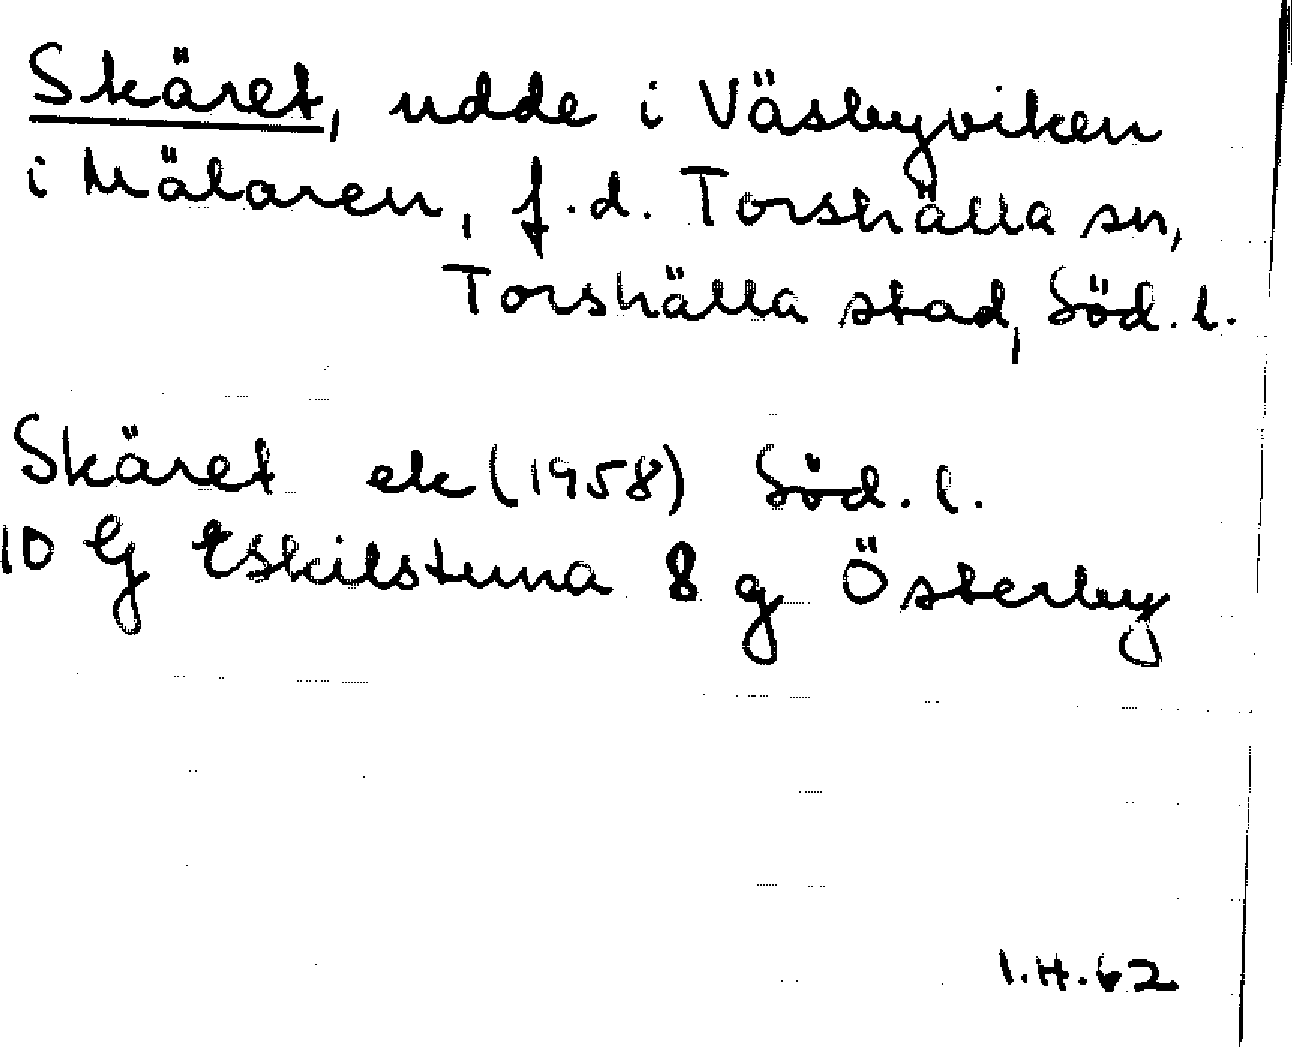 Skäret, udde i Väsbyviken
i Mälaren, f.d. Torshälla sn,
Torshälla stad, Söd. l.
Skäret ek (1958) Söd. l.
10 G Eskilstuna 8 g Österby
I.H.62